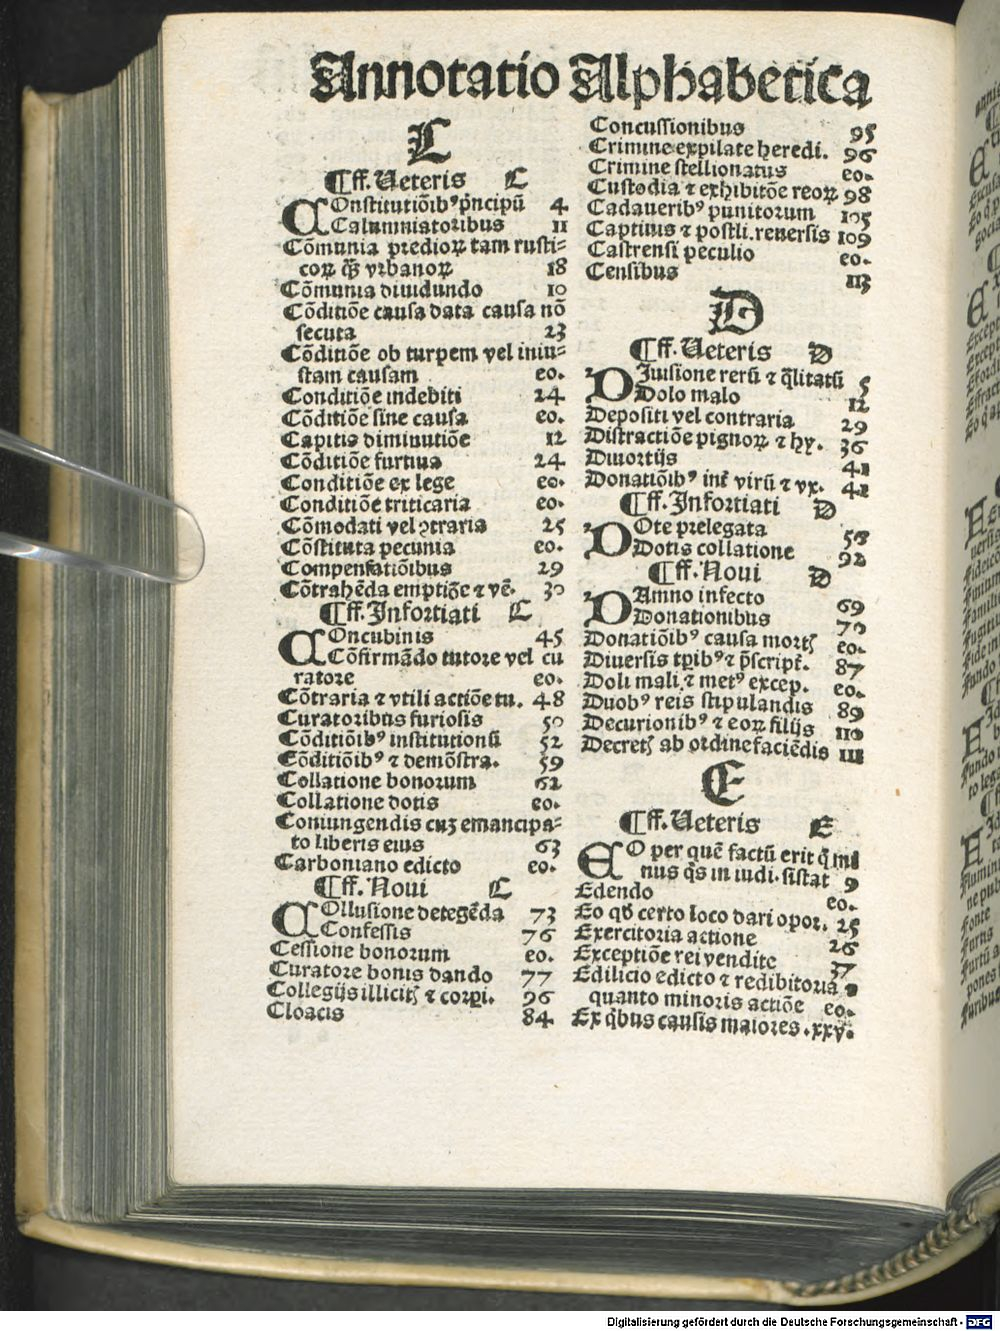 Annotatio Alphabetica
C
¶ff. Ueteris C
COnstitutiõibꝰ pͥncipũ 4
Calumniatoribus 11
Cõmunia predioꝝ tam rusti⸗
coꝝ ꝙ̃ vrbanoꝝ 18
Cõmunia diuidundo 10
Cõditiõe causa data causa nõ
secuta 23
Cõditiõe ob turpem vel iniu⸗
stam causam eo.
Conditiõe indebiti 24
Cõditiõe sine causa eo.
Capitis diminutiõe 12
Cõditiõe furtiua 24
Conditiõe ex lege eo.
Conditiõe triticaria eo.
Cõmodati vel ↄtraria 25
Cõstituta pecunia eo.
Compensatiõibus 29
Cõtrahẽda emptiõe ⁊ vẽ. 30
¶ff. Infortiati C
COncubinis 45
Cõfirmãdo tutore vel cu
ratore eo.
Cõtraria ⁊ vtili actiõe tu. 48
Curatoribus furiosis 50
Cõditiõibꝰ institutionũ 52
Cõditiõibꝰ ⁊ demõstra. 59
Collatione bonorum 62
Collatione dotis eo.
Coniungendis cuʒ emancipa⸗
to liberis eius 63
Carboniano edicto eo.
¶ff. Noui C
COllusione detegẽda 73
Confessis 76
Cessione bonorum eo.
Curatore bonis dando 77
Collegijs illicitꝭ ⁊ corpi. 96
Cloacis 84
Concussionibus 95
Crimine expilate heredi. 96
Crimine stellionatus eo.
Custodia ⁊ exhibitõe reoꝝ 98
Cadaueribꝰ punitorum 105
Captiuis ⁊ postli. reuersis 109
Castrensi peculio eo.
Censibus 113
D
¶ff. Ueteris D
DIuisione rerũ ⁊ q̃litatũ 5
Dolo malo 12
Depositi vel contraria 29
Distractiõe pignoꝝ ⁊ hy. 36
Diuortijs 41
Donatiõibꝰ int̃ virũ ⁊ vx. 41
¶ff. Infortiati D
DOte prelegata
Dotis collatione 92
¶ff. Noui D
DAmno infecto 69
Donationibus 70
Donatiõibꝰ causa mortꝭ eo.
Diuersis tp̃ibꝰ ⁊ p̃script̃. 87
Doli mali ⁊ metꝰ excep. eo.
Duobꝰ reis stipulandis 89
Decurionibꝰ ⁊ eoꝝ filijs 110
Decretꝭ ab ordine faciẽdis 111
E
¶ff. Ueteris E
EO per quẽ factũ erit q̃ mi
nus q̃s in iudi. sistat 9
Edendo eo.
Eo qđ certo loco dari opor. 25
Exercitoria actione 26
Exceptiõe rei vendite 37
Edilicio edicto ⁊ redibitoria ⁊
quanto minoris actiõe eo.
Ex q̃bus causis maiores .xxv.
Digitalisierung gefördert durch die Deutsche Forschungsgemeinschaft - DFG